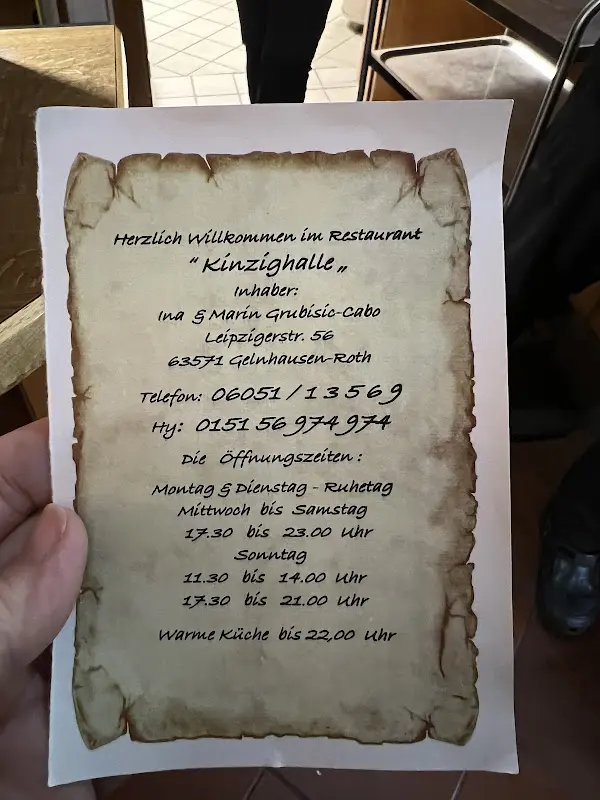 Herzlich Willkommen im Restaurant
“ Kinzighalle „
Inhaber:
Ina & Marin Grubisic-Cabo
Leipzigerstr. 56
63571 Gelnhausen-Roth
Telefon: 06051 / 1 3 5 6 9
Hy: 0151 56 974 974
Die Öffnungszeiten :
Montag & Dienstag - Ruhetag
Mittwoch bis Samstag
17.30 bis 23.00 Uhr
Sonntag
11.30 bis 14.00 Uhr
17.30 bis 21.00 Uhr
Warme Küche bis 22,00 Uhr